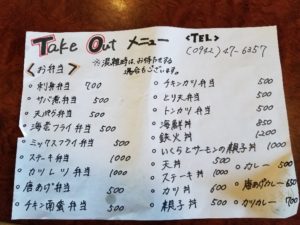 Take Out メニュー <TEL>
(0942)47-6357
※混雑時は、お待たせする
場合もございます。
<お弁当>
・刺身弁当 700
・サバ煮弁当 500
・天ぷら弁当 500
・海老フライ弁当 500
・ミックスフライ弁当 500
・ステーキ弁当 1000
・カツレツ弁当 1000
・唐あげ弁当 500
・チキン南蛮弁当 500
・チキンカツ弁当 500
・とり天弁当 500
・トンカツ弁当 500
・海鮮丼 850
・鉄火丼 1200
・いくらとサーモンの親子丼 1000
・天丼 500
・ステーキ丼 1000
・カツ丼 600
・親子丼 500
・カレー 500
・唐あげカレー 650
・カツカレー 700